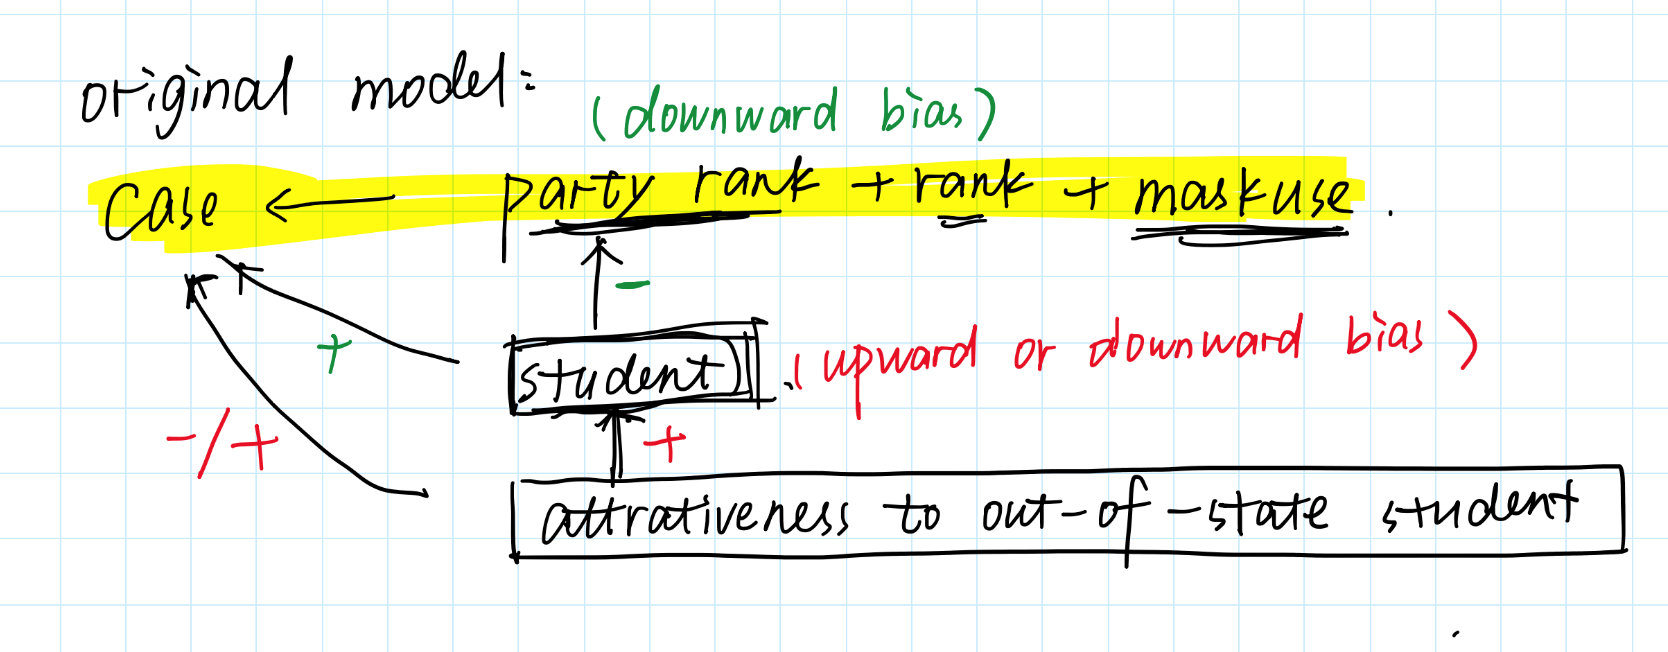 original model:
(downward bias)
Case ← party rank + rank + maskuse.
-
+
student. (upward or downward bias)
-/+
+
attrativeness to out-of-state student